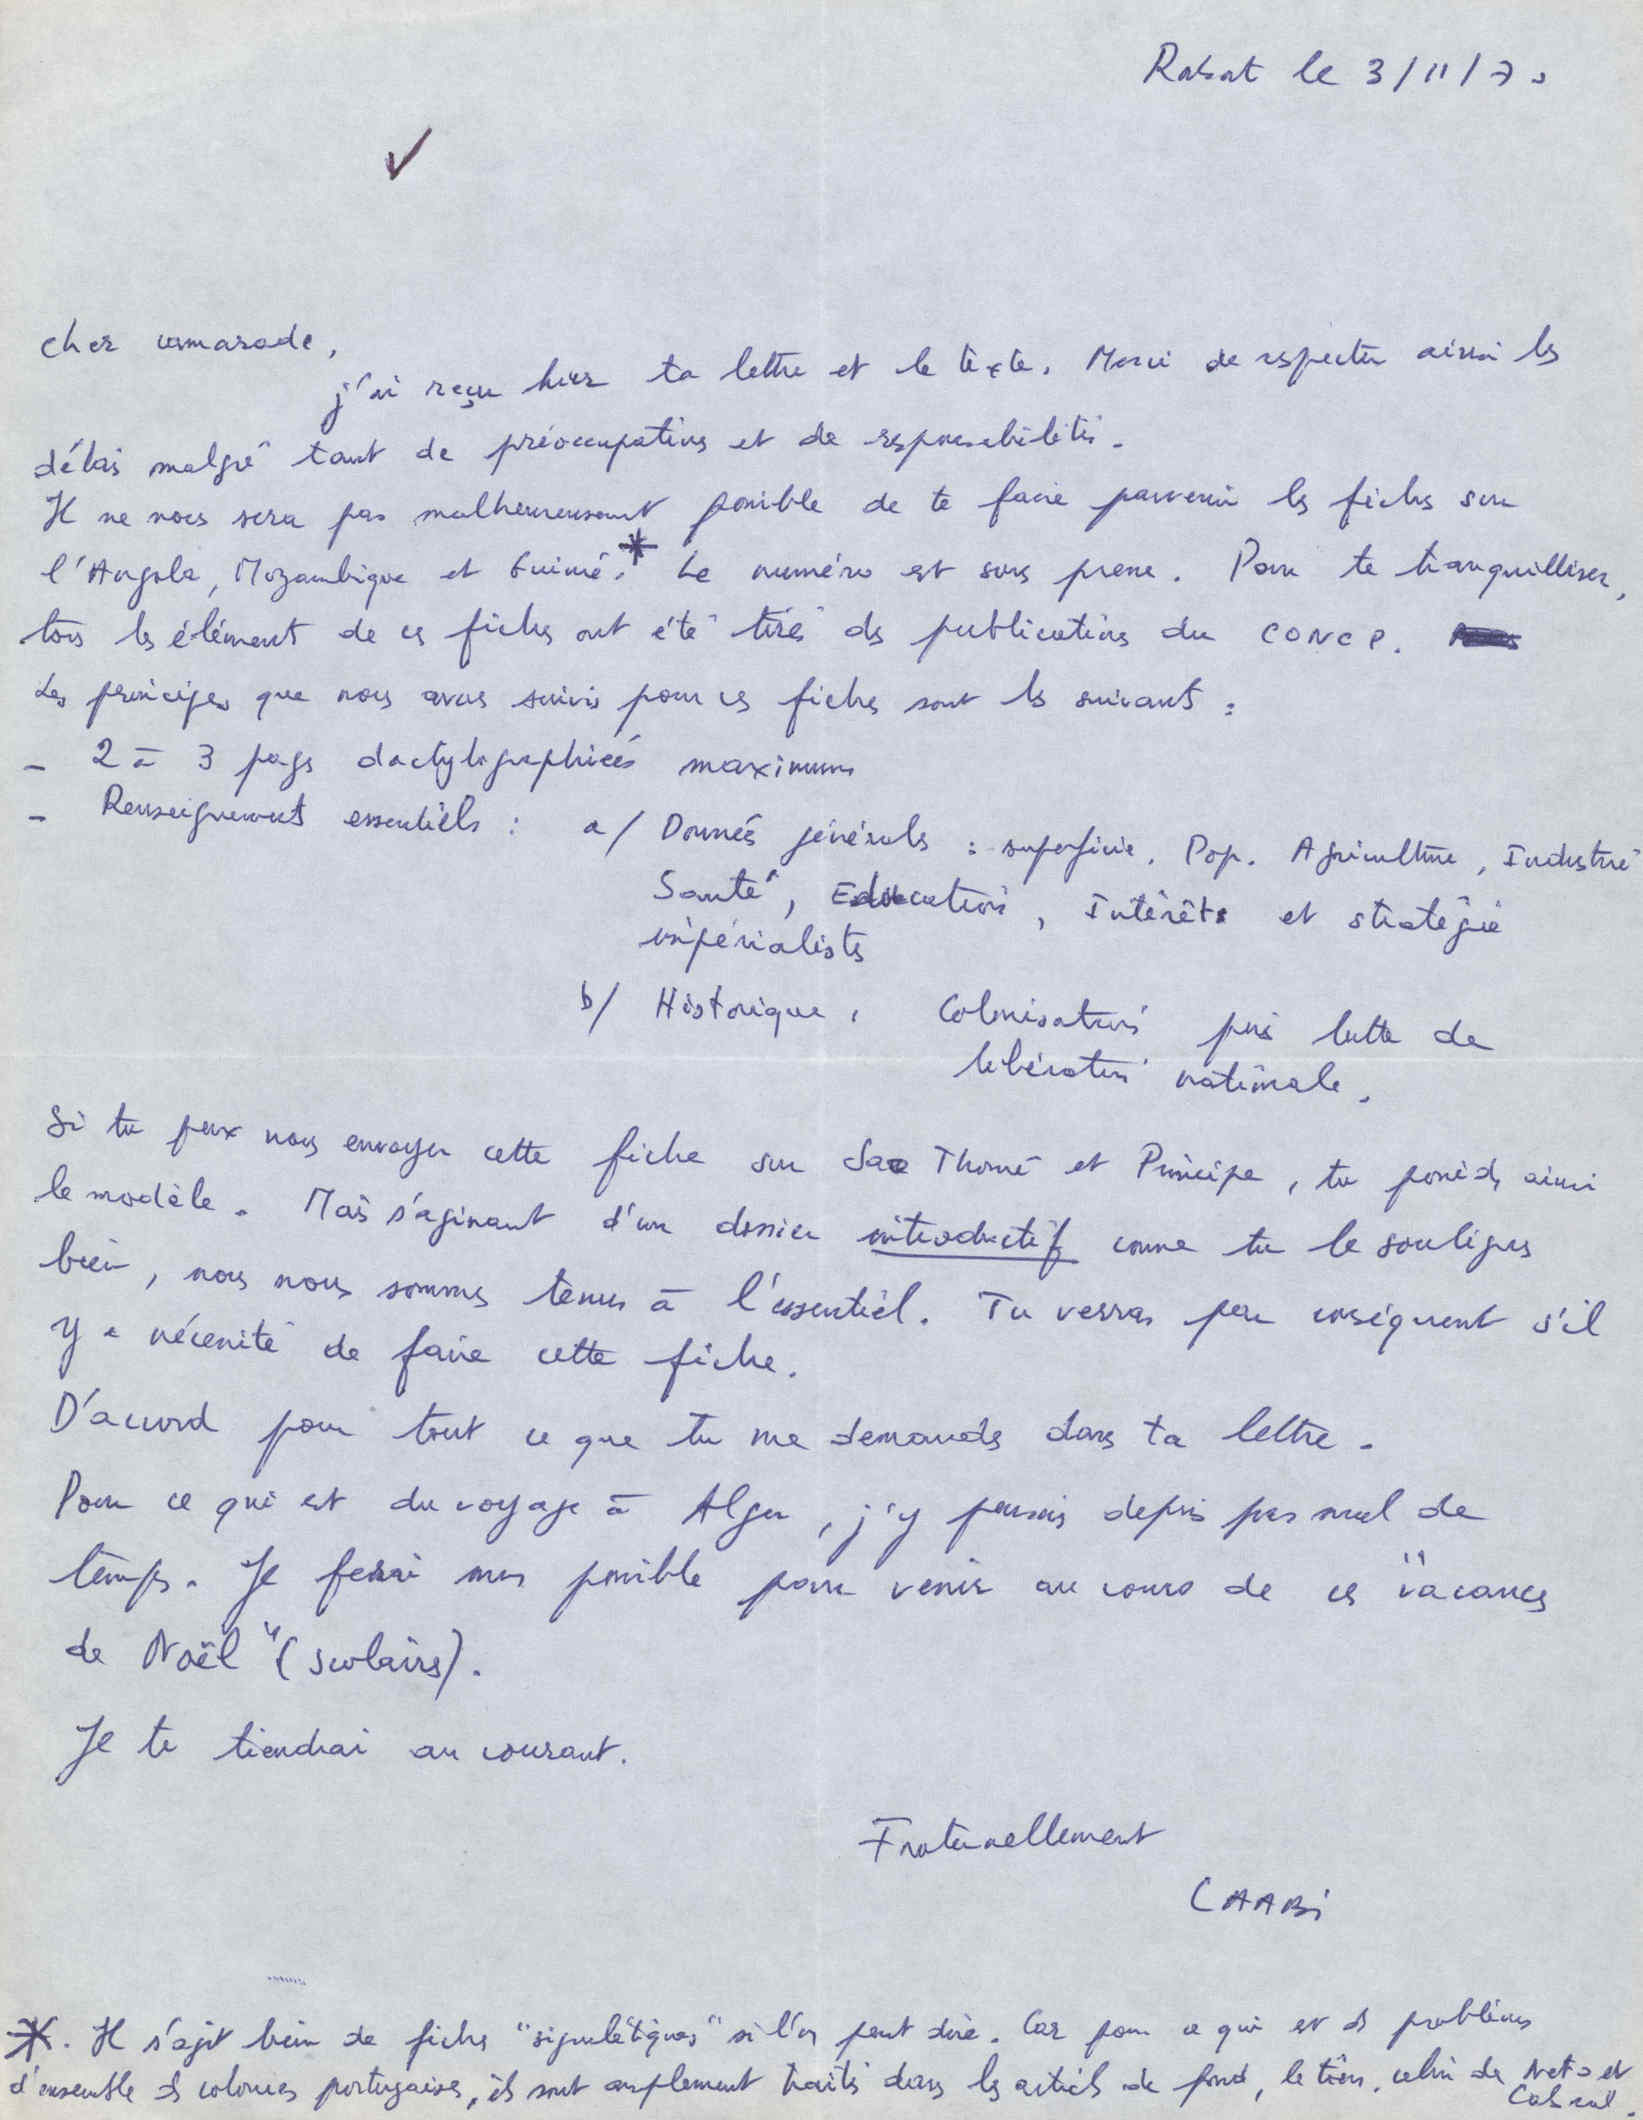 Rabat le 3/11/70
cher camarade,
j'ai reçu hier ta lettre et le texte. Merci de respecter ainsi les
délais malgré tant de préoccupations et de responsabilités.
Il ne nous sera pas malheureusement possible de te faire parvenir les fiches sur
l'Angola, Mozambique et Guinée.* Le numéro est sous presse. Pour te tranquilliser,
tous les élément de ces fiches ont été tirés des publications du CONCP.
Les principes que nous avons suivis pour ces fiches sont les suivants :
- 2 à 3 pages dactylographiées maximum
- Renseignements essentiels : a/ Données générales : superficie, Pop. Agriculture, Industrie
Santé, Education, Intérêts et stratégie
impérialistes
b/ Historique, Colonisation puis lutte de
libération nationale.
Si tu peux nous envoyer cette fiche sur Sao Thomé et Principe, tu possèdes ainsi
le modèle. Mais s'agissant d'un dossier introductif comme tu le soulignes
bien, nous nous sommes tenus à l'essentiel. Tu verras par conséquent s'il
y a nécessité de faire cette fiche.
D'accord pour tout ce que tu me demandes dans ta lettre.
Pour ce qui est du voyage à Alger, j'y pensais depuis pas mal de
temps. Je ferai mon possible pour venir au cours de ces "vacances
de Noël" (scolaires).
Je te tiendrai au courant.
Fraternellement
LAABI
*. Il s'agit bien de fiches "signalétiques" si l'on peut dire. Car pour ce qui est des problèmes
d'ensemble des colonies portugaises, ils sont amplement traités dans les articles de fond, le tien, celui de Neto et
Cabral.